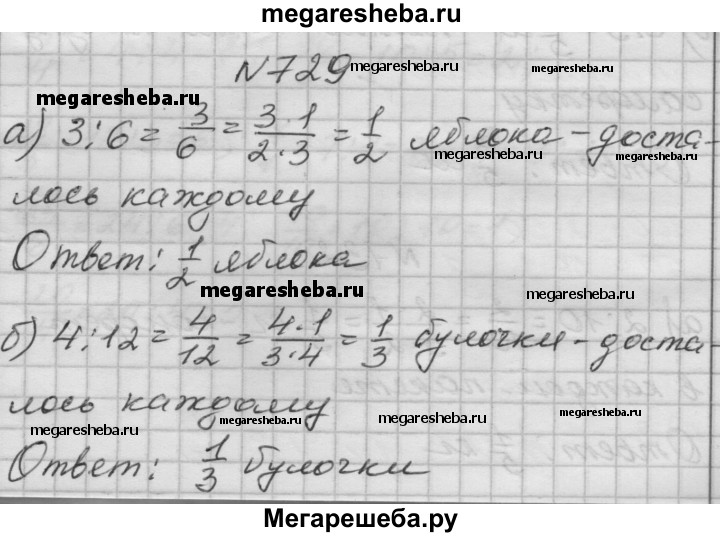 megaresheba.ru
N729 megaresheba.ru megaresheba.ru
megaresheba.ru
а) 3:6 = 3/6 = 3·1/2·3 = 1/2 яблока - доста-
megaresheba.ru megaresheba.ru
лось каждому
Ответ: 1/2 яблока
megaresheba.ru megaresheba.ru
б) 4:12 = 4/12 = 4·1/3·4 = 1/3 булочки - доста-
лось каждому
megaresheba.ru megaresheba.ru megaresheba.ru megaresheba.ru
Ответ: 1/3 булочки
Мегарешеба.ру